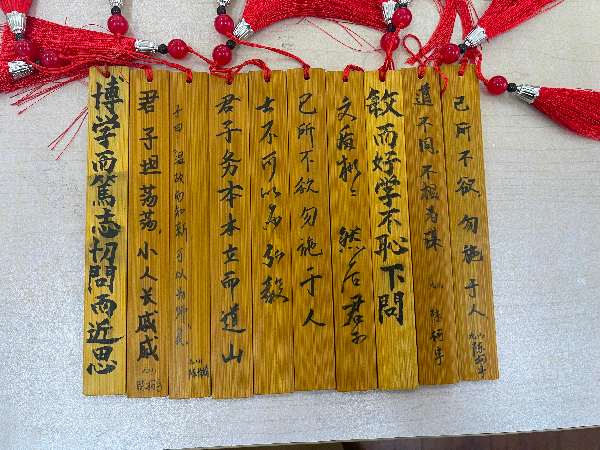 己所不欲勿施于人
道不同不相为谋
敏而好学不恥下問
文质彬彬 然后君子
己所不欲勿施于人
士不可以 弘毅
君子务本本立而道
子曰 温故而知新 可以为师矣
君子坦荡荡,小人长戚戚
博学而篤志切問而近思